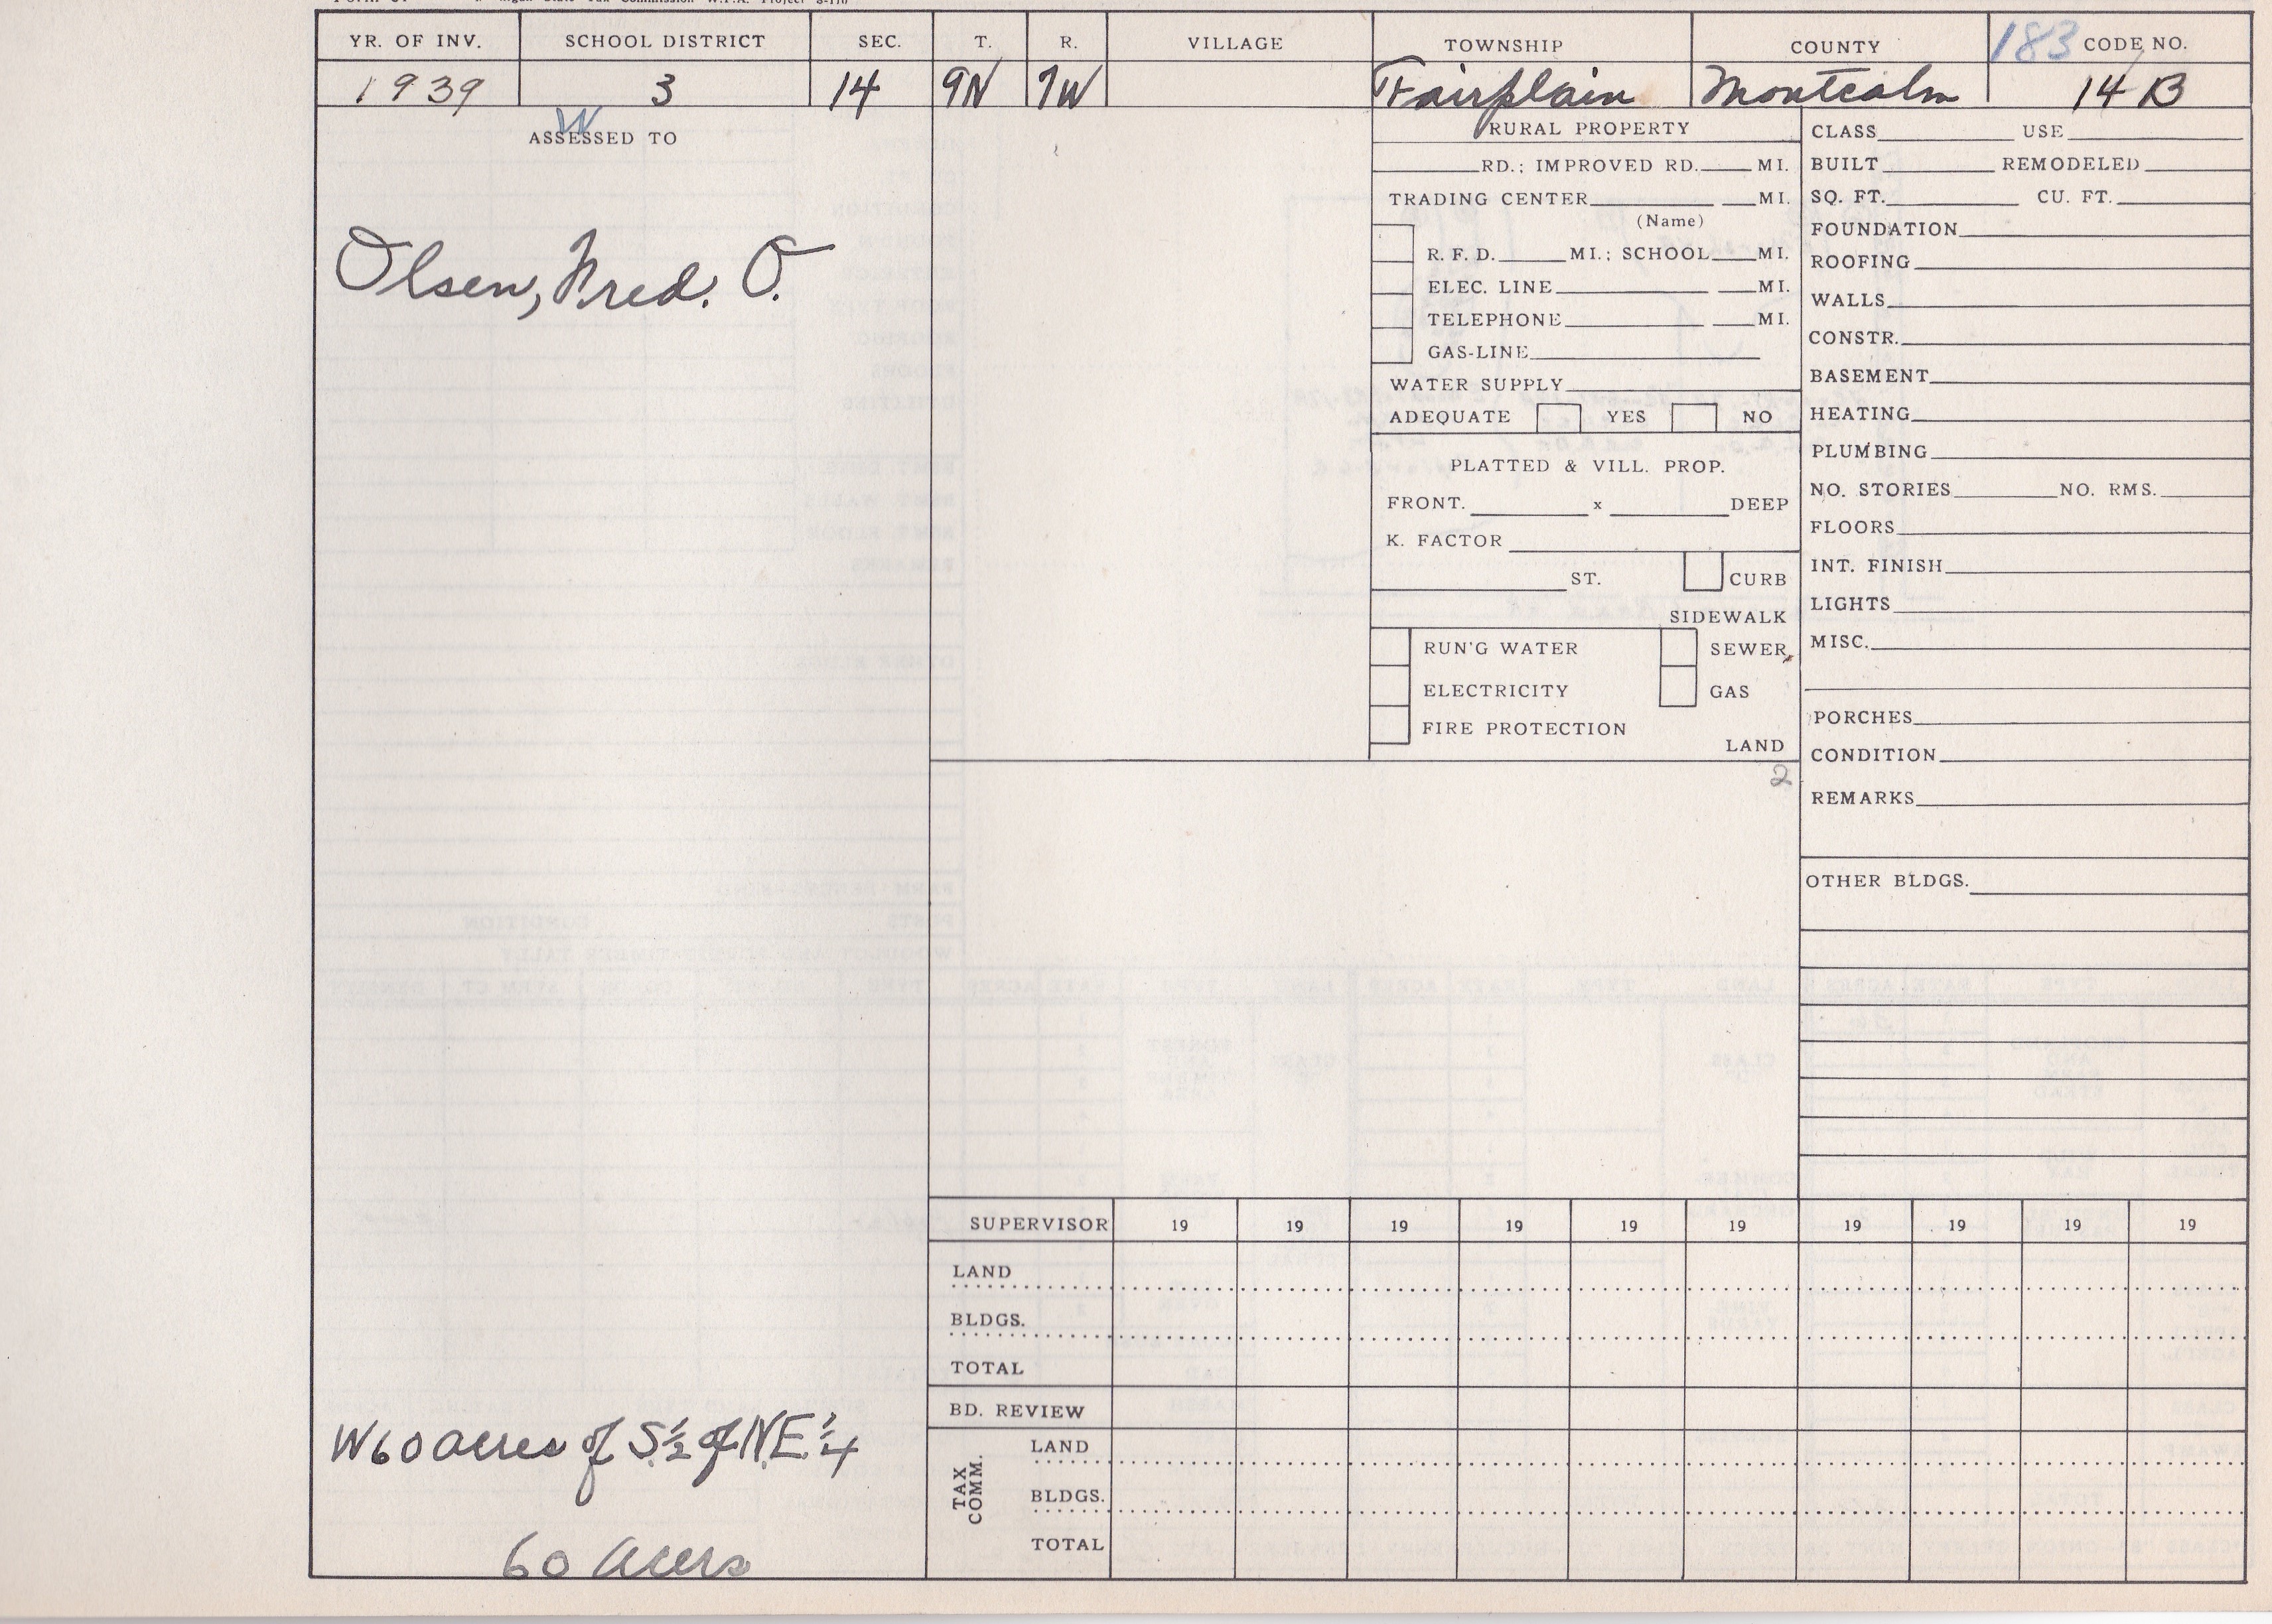 State Tax Commission W.P.A. Project
YR. OF INV. SCHOOL DISTRICT SEC. T. R. VILLAGE TOWNSHIP COUNTY 183 CODE NO.
1939 3 14 9N 7W Fairplain Montcalm 14 B
W
ASSESSED TO
Olsen, Fred. O.
W 60 acres of S.½ of N.E.¼
60 Acers
RURAL PROPERTY
RD.; IMPROVED RD. MI.
TRADING CENTER MI.
(Name)
R. F. D. MI.; SCHOOL MI.
ELEC. LINE MI.
TELEPHONE MI.
GAS-LINE
WATER SUPPLY
ADEQUATE YES NO
PLATTED & VILL. PROP.
FRONT. x DEEP
K. FACTOR
ST. CURB
SIDEWALK
RUN'G WATER SEWER
ELECTRICITY GAS
FIRE PROTECTION
LAND
2
CLASS USE
BUILT REMODELED
SQ. FT. CU. FT.
FOUNDATION
ROOFING
WALLS
CONSTR.
BASEMENT
HEATING
PLUMBING
NO. STORIES NO. RMS.
FLOORS
INT. FINISH
LIGHTS
MISC.
PORCHES
CONDITION
REMARKS
OTHER BLDGS.
SUPERVISOR 19 19 19 19 19 19 19 19 19 19
LAND
BLDGS.
TOTAL
BD. REVIEW
TAX COMM.
LAND
BLDGS.
TOTAL